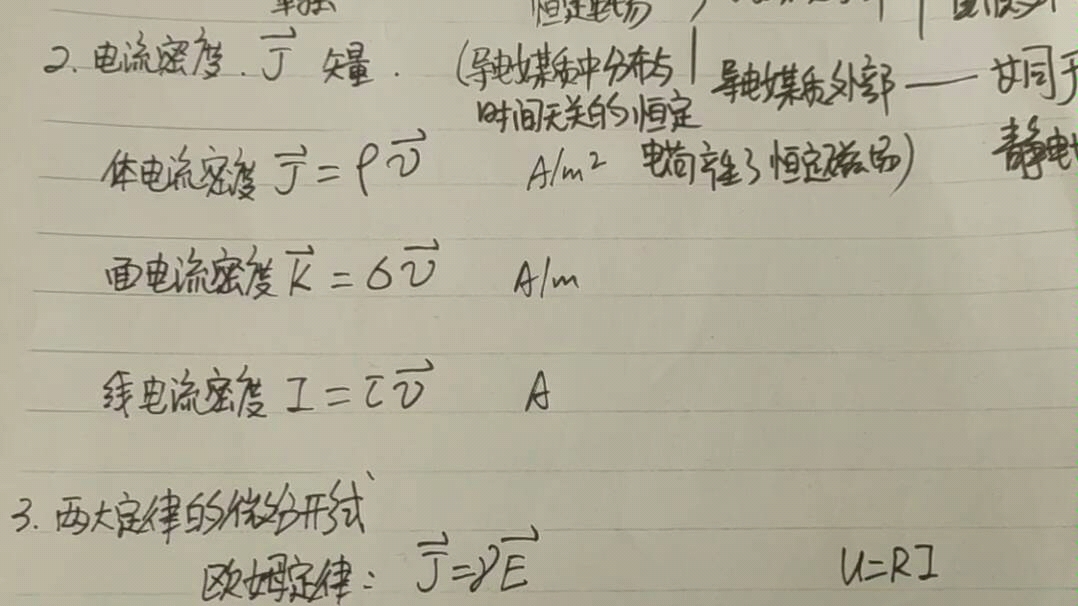 恒定电场
2. 电流密度. J⃗ 矢量. (导电媒质中分布与 | 导电媒质外部 —— 如同于
时间无关的恒定
体电流密度 J⃗ = ρv⃗ A/m² 电荷产生了恒定磁场) 静电
面电流密度 K⃗ = σv⃗ A/m
线电流密度 I = τv⃗ A
3. 两大定律的微分形式
欧姆定律: J⃗ = γE⃗ U=RI